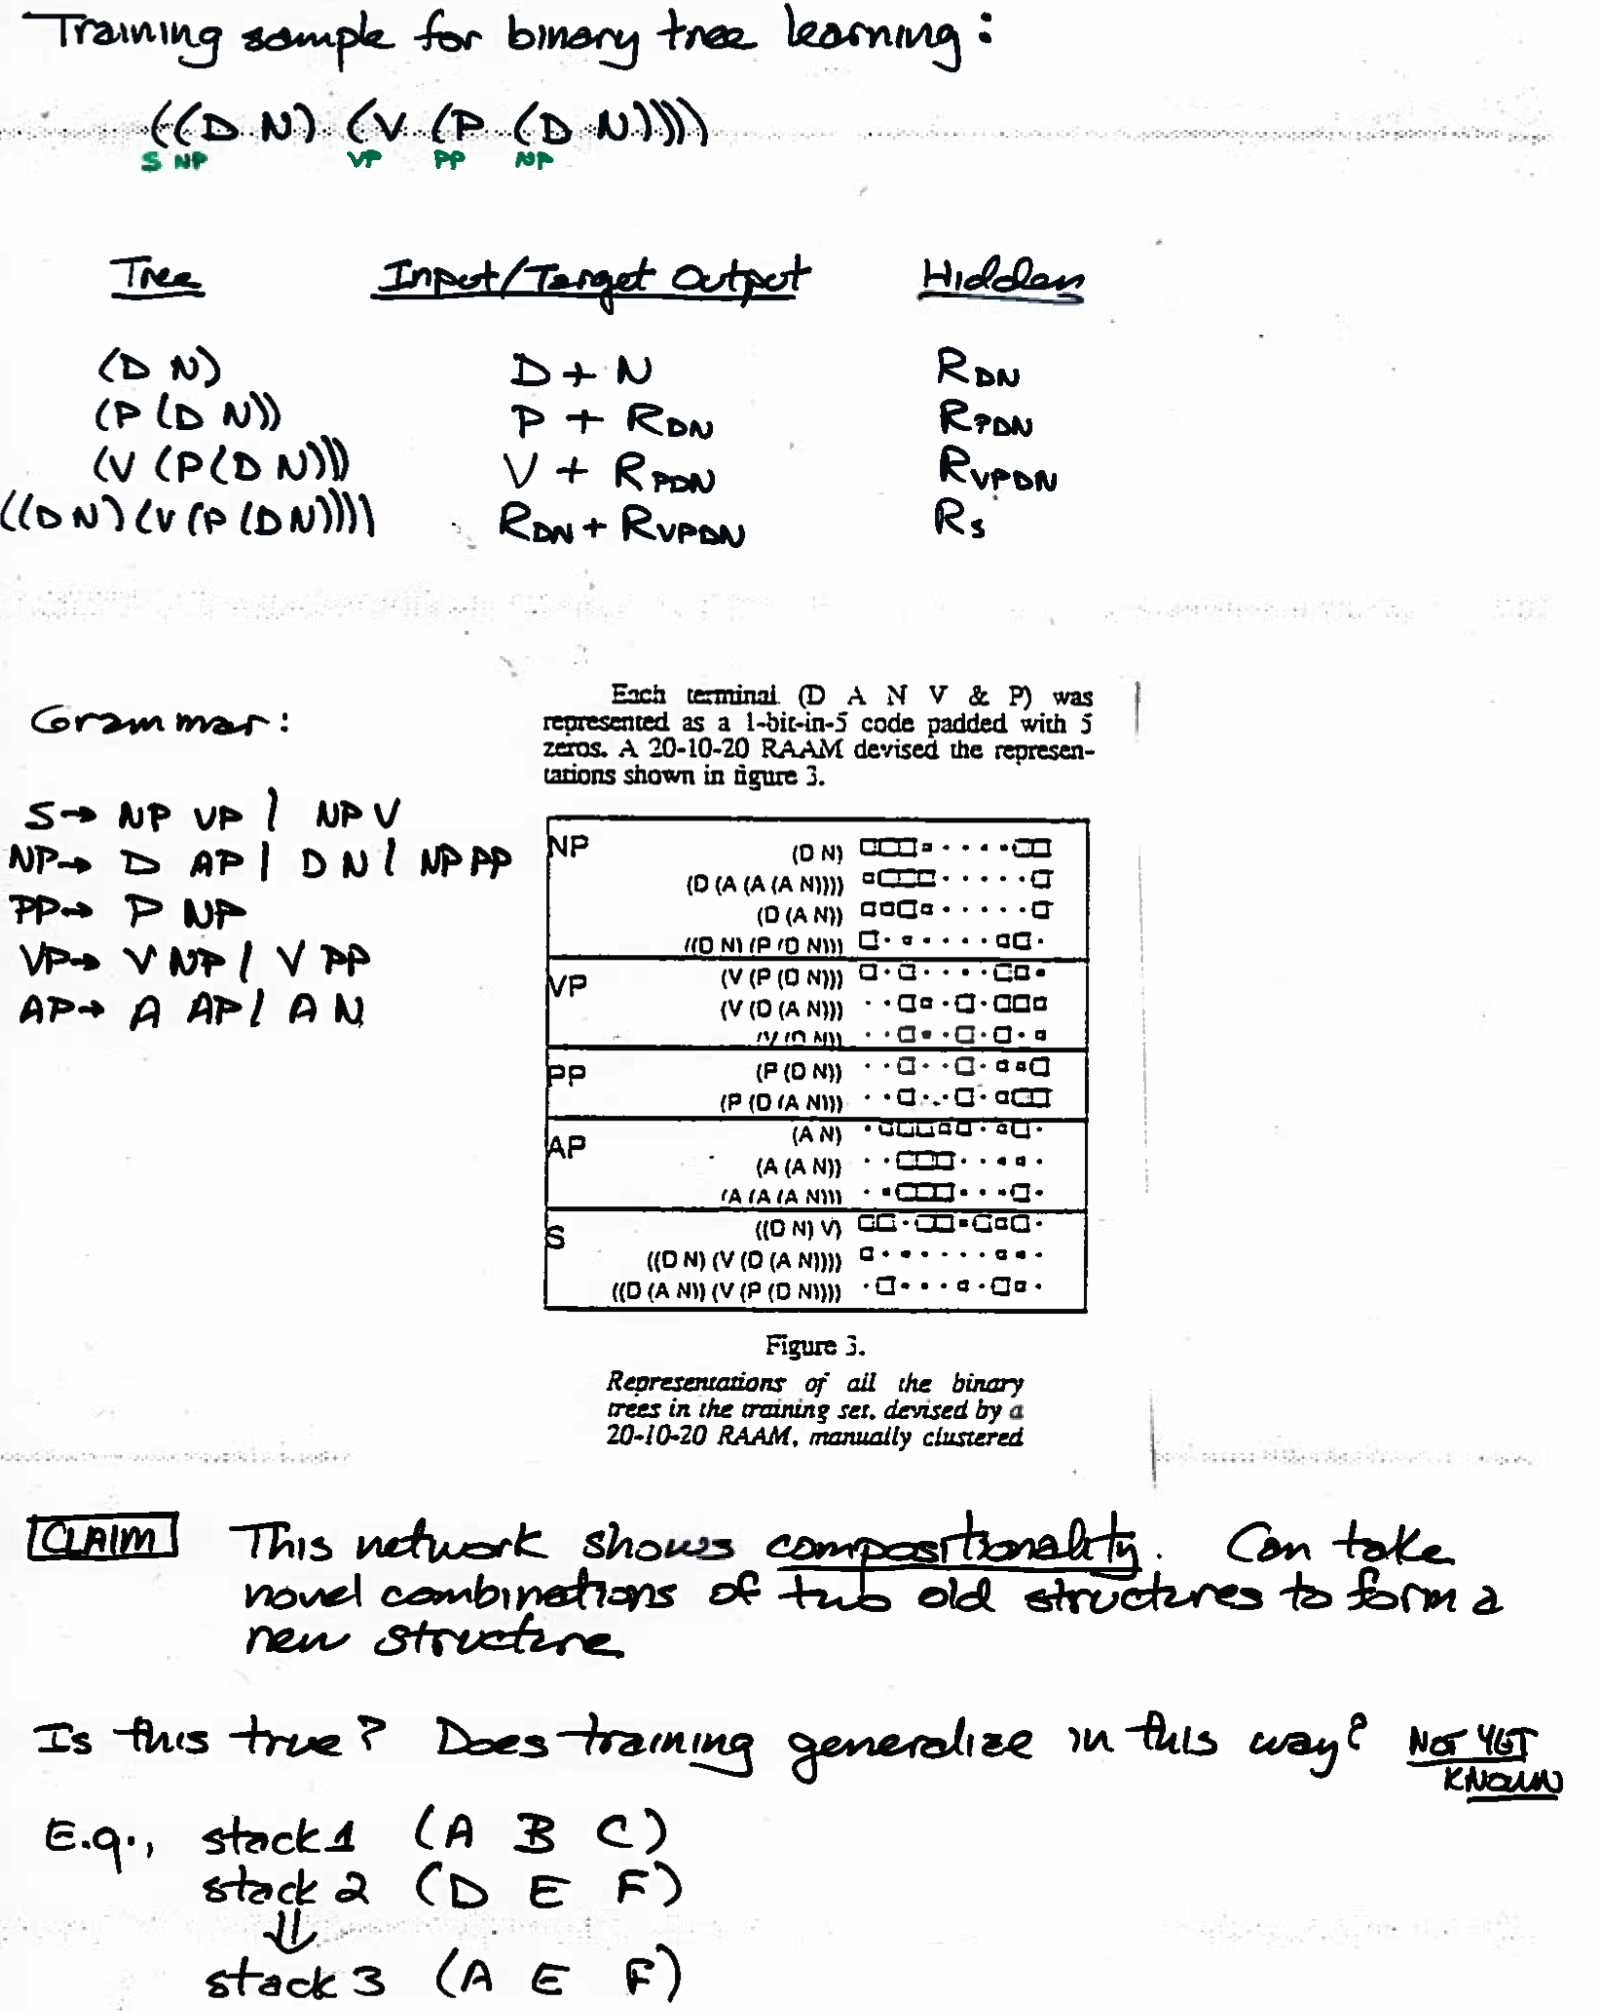 Training sample for binary tree learning:
((D N) (V (P (D N))))
S NP VP PP NP
Tree Input/Target Output Hidden
(D N) D + N R DN
(P (D N)) P + R DN R PDN
(V (P (D N))) V + R PDN R VPDN
((D N) (V (P (D N)))) R DN + R VPDN R S
Each terminal (D A N V & P) was
represented as a 1-bit-in-5 code padded with 5
zeros. A 20-10-20 RAAM devised the represen-
tations shown in figure 3.
Grammar:
S→ NP VP | NP V
NP→ D AP | D N | NP PP
PP→ P NP
VP→ V NP | V PP
AP→ A AP | A N
NP (D N)
(D (A (A (A N))))
(D (A N))
((D N) (P (D N)))
VP (V (P (D N)))
(V (D (A N)))
(V (D N))
PP (P (D N))
(P (D (A N)))
AP (A N)
(A (A N))
(A (A (A N)))
S ((D N) V)
((D N) (V (D (A N))))
((D (A N)) (V (P (D N))))
Figure 3.
Representations of all the binary
trees in the training set, devised by a
20-10-20 RAAM, manually clustered
CLAIM This network shows compositionality. Can take
novel combinations of two old structures to form a
new structure
Is this true? Does training generalize in this way? NOT YET
KNOWN
E.g., stack 1 (A B C)
stack 2 (D E F)
⇓
stack 3 (A E F)